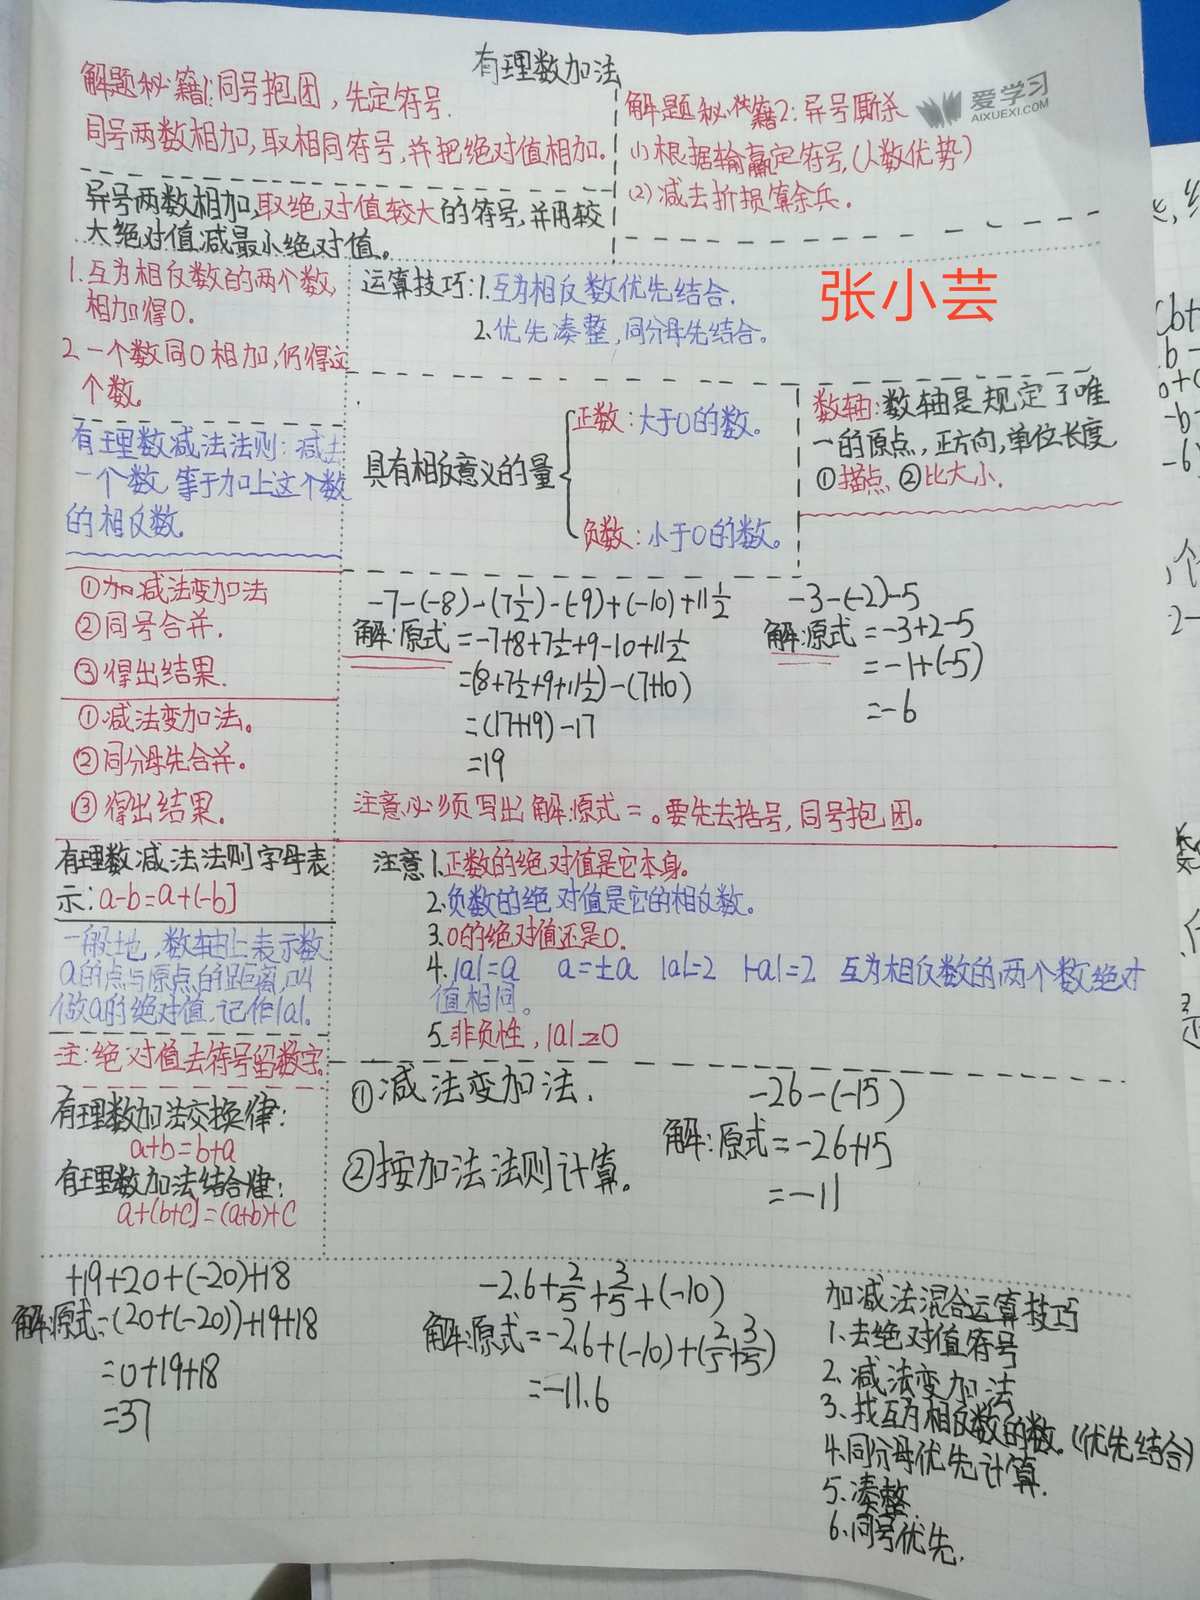 有理数加法
解题秘籍1:同号抱团,先定符号.
同号两数相加,取相同符号,并把绝对值相加.
解题秘籍2:异号厮杀
爱学习
AIXUEXI.COM
(1)根据输赢定符号,(人数优势)
(2)减去折损算余兵.
异号两数相加,取绝对值较大的符号,并用较
大绝对值减最小绝对值。
1.互为相反数的两个数,
相加得0.
2.一个数同0相加,仍得这
个数.
运算技巧:1.互为相反数优先结合.
2.优先凑整,同分母先结合。
张小芸
有理数减法法则:减去
一个数,等于加上这个数
的相反数.
具有相反意义的量
正数:大于0的数。
负数:小于0的数。
数轴:数轴是规定了唯
一的原点,正方向,单位长度
①描点 ②比大小.
①加减法变加法
②同号合并.
③得出结果.
①减法变加法。
②同分母先合并。
③得出结果.
-7-(-8)-(7½)-(-9)+(-10)+11½
解:原式=-7+8+7½+9-10+11½
=(8+7½+9+11½)-(7+10)
=(17+19)-17
=19
-3-(-2)-5
解:原式=-3+2-5
=-1+(-5)
=-6
注意必须写出解:原式=。要先去括号,同号抱团。
有理数减法法则字母表
示:a-b=a+(-b]
一般地,数轴上表示数
a的点与原点的距离,叫
做a的绝对值,记作|a|.
注:绝对值去符号留数字.
注意1.正数的绝对值是它本身。
2.负数的绝对值是它的相反数。
3.0的绝对值还是0.
4.|a|=a a=±a |a|=2 |-a|=2 互为相反数的两个数绝对
值相同。
5.非负性,|a|≥0
有理数加法交换律:
a+b=b+a
有理数加法结合律:
a+(b+c]=(a+b)+c
①减法变加法.
②按加法法则计算。
-26-(-15)
解:原式=-26+15
=-11
+19+20+(-20)+18
解:原式=(20+(-20))+19+18
=0+19+18
=37
-2.6+2/5+3/5+(-10)
解:原式=-2.6+(-10)+(2/5+3/5)
=-11.6
加减法混合运算技巧
1.去绝对值符号
2.减法变加法
3.找互为相反数的数。(优先结合)
4.同分母优先计算.
5.凑整
6.同号优先.